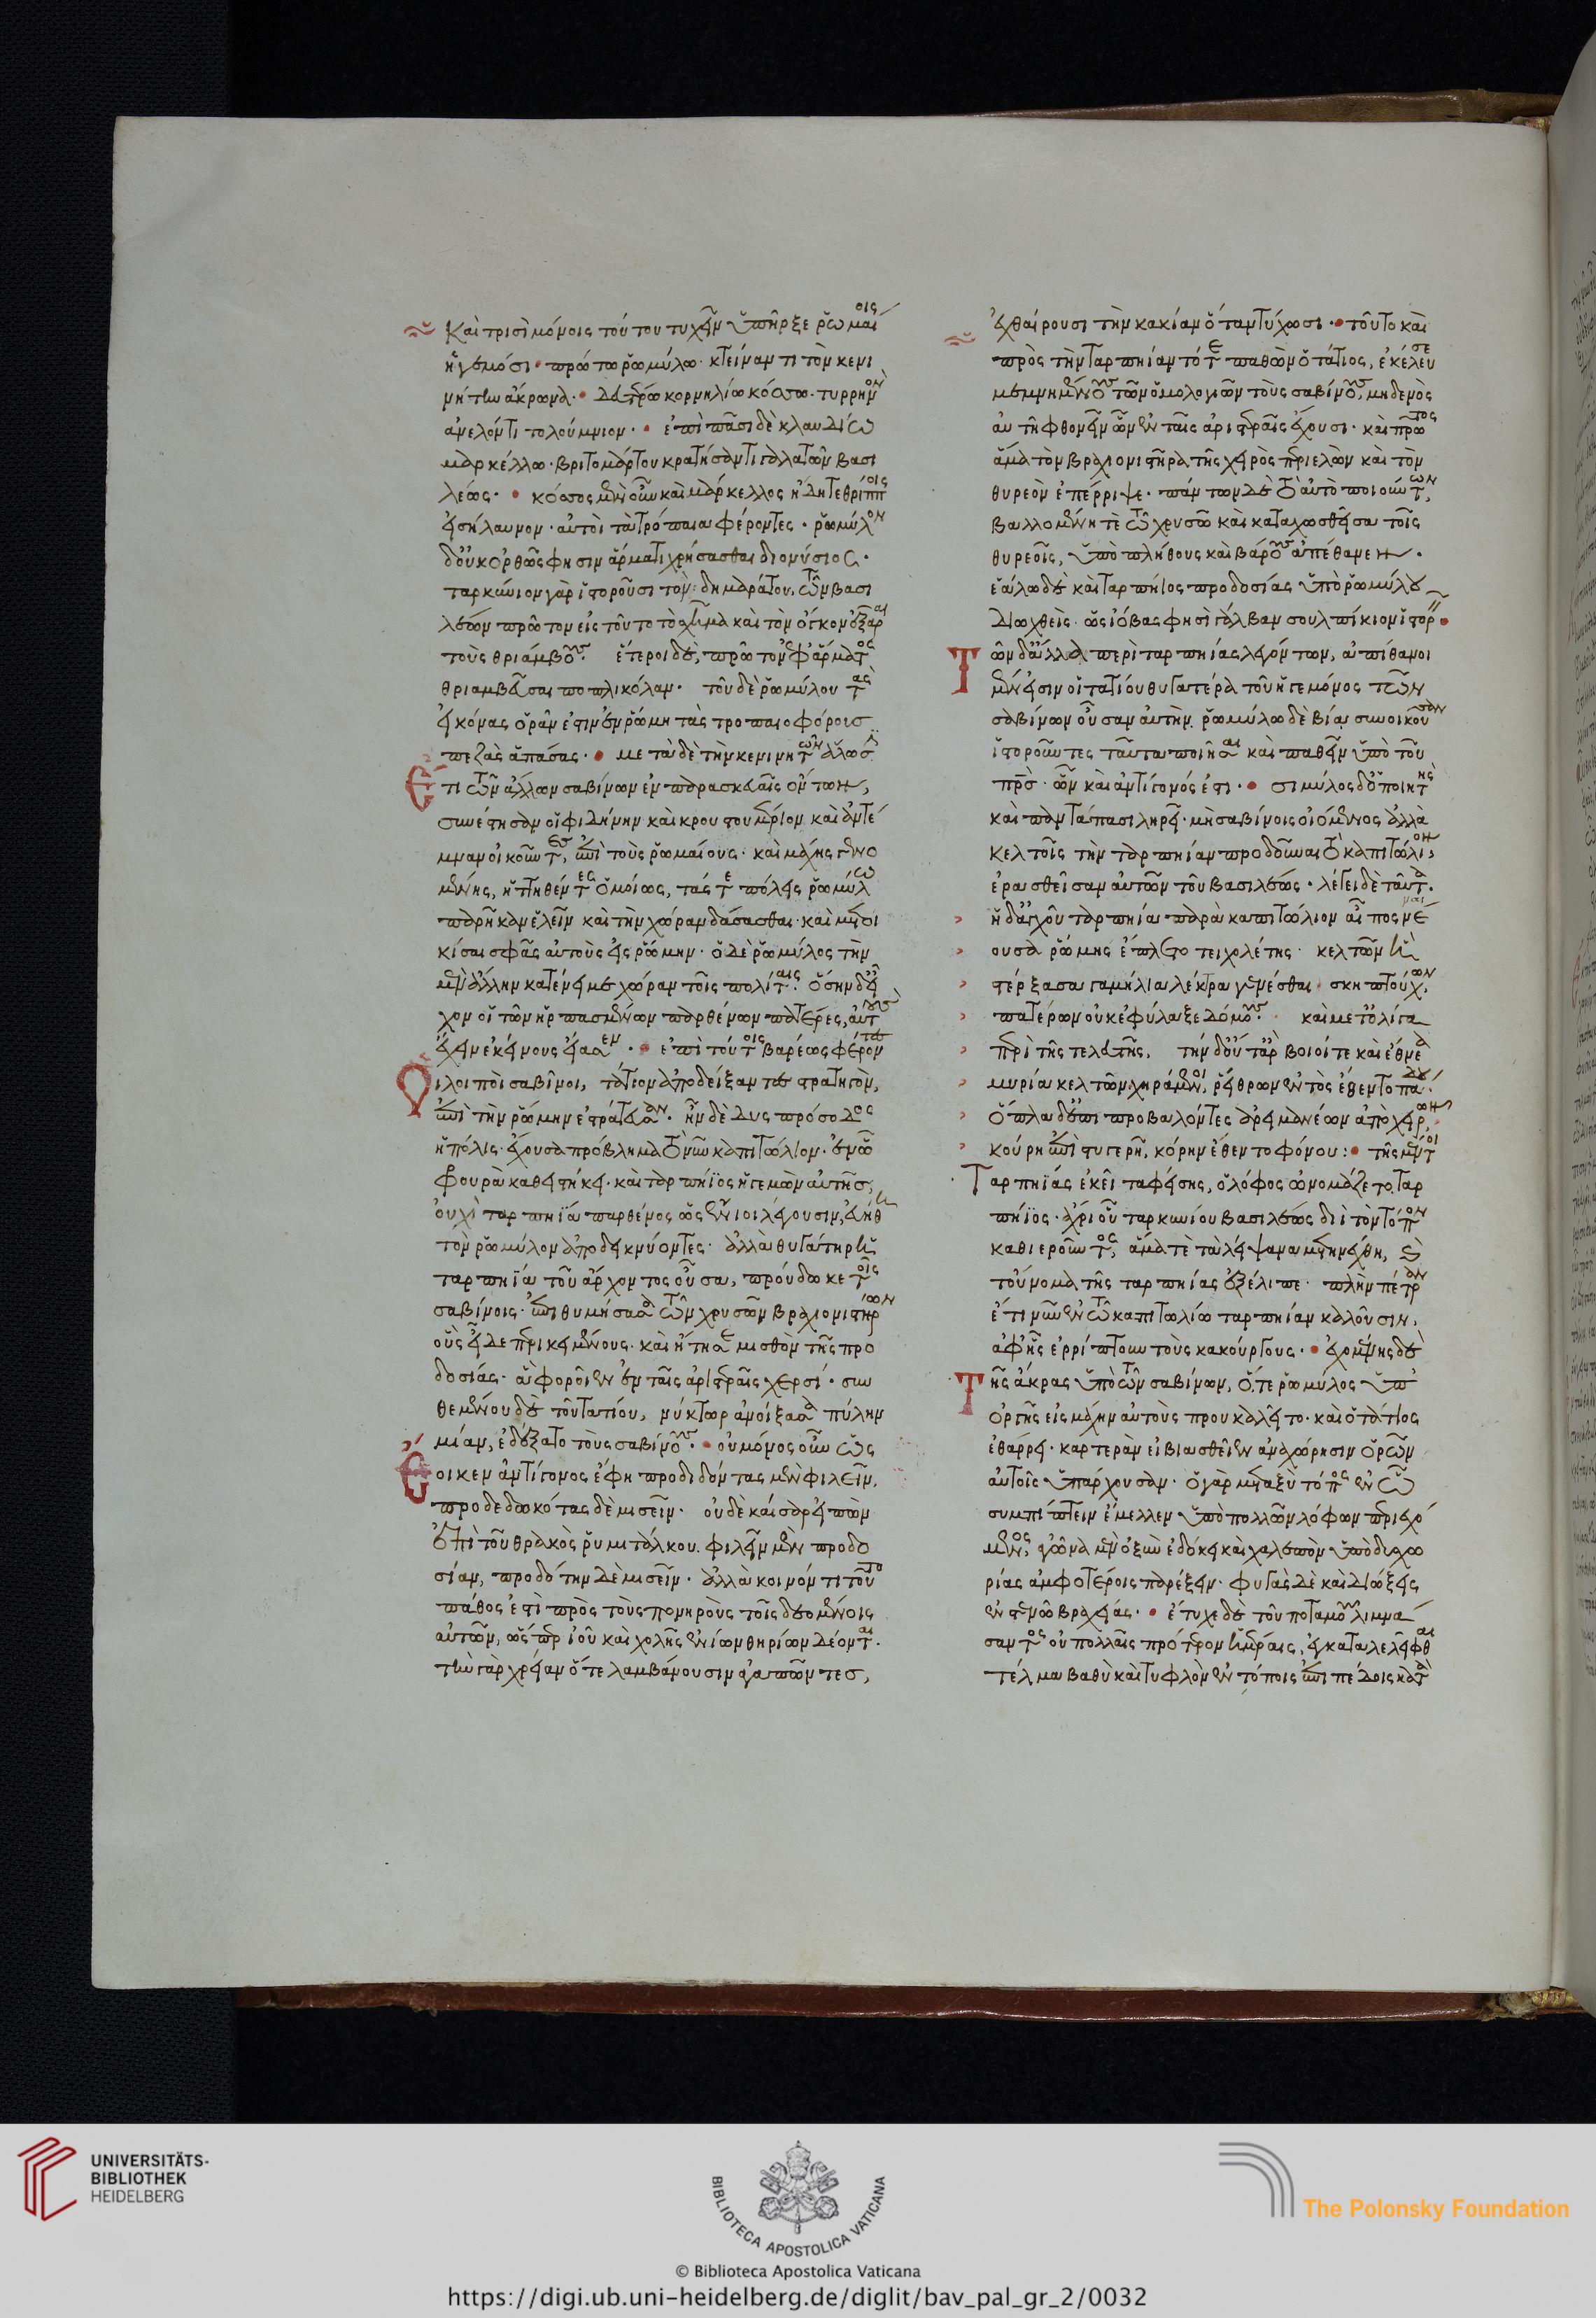 Καὶ τρισὶ μόνοις τούτου τυχεῖν ὑπῆρξε ῥωμαίοις
ἡγεμόσι· πρώτω ῥωμύλω· κτείναντι τὸν κενι
νήτην ἄκρωνα· δευτέρω κορνηλίω κόσσω· τυρρηνὸν
ἀνελόντι τολούμνιον· ἐπὶ πᾶσι δὲ κλαυδίω
μαρκέλλω· βριτομάρτου κρατήσαντι γαλατῶν βασι
λέως· κόσσος μὲν οὖν καὶ μάρκελλος ἤδη τεθρίπποις
εἰσήλαυνον· αὐτοὶ τὰ τρόπαια φέροντες· ῥωμύλον
δ' οὐκ ὀρθῶς φησιν ἅρματι χρήσασθαι διονύσιος·
ταρκύνιον γὰρ ἱστοροῦσι τὸν δημαράτου, τῶν βασι
λέων πρῶτον εἰς τοῦτο τὸ σχῆμα καὶ τὸν ὄγκον ἐξᾶραι
τοὺς θριάμβους. ἕτεροι δὲ, πρῶτον ἐφ' ἅρματος
θριαμβεῦσαι ποπλικόλαν· τοῦ δὲ ῥωμύλου τὰς
εἰκόνας ὁρᾶν ἔστιν ἐν ῥώμη τὰς τροπαιοφόρους
πεζὰς ἁπάσας· μετὰ δὲ τὴν κενινητῶν ἅλωσιν
ἔτι τῶν ἄλλων σαβίνων ἐν παρασκευαῖς ὄντων,
συνέστησαν οἱ φιδήνην καὶ κρουστουμέριον καὶ ἀντέ
μναν οἰκοῦντες, ἐπὶ τοὺς ῥωμαίους· καὶ μάχης γενο
μένης, ἡττηθέντες ὁμοίως, τάς τε πόλεις ῥωμύλω
παρῆκαν ἑλεῖν καὶ τὴν χώραν δάσασθαι· καὶ μετοι
κίσαι σφᾶς αὐτοὺς εἰς ῥώμην· ὁ δὲ ῥωμύλος τὴν
μὲν ἄλλην κατένειμε χώραν τοῖς πολίταις· ὅσην δ' εἶ
χον οἱ τῶν ἡρπασμένων παρθένων πατέρες, αὐτοὺς
ἔχειν ἐκείνους εἴασεν· ἐπὶ τούτοις βαρέως φέροντες
Οἱ λοιποὶ σαβῖνοι, τάτιον ἀποδείξαντες στρατηγὸν,
ἐπὶ τὴν ῥώμην ἐστράτευσαν· ἦν δὲ δυσπρόσοδος
ἡ πόλις· ἔχουσα πρόβλημα τὸ νῦν καπιτώλιον· ἐν ὧ
φρουρὰ καθειστήκει· καὶ ταρπήϊος ἡγεμὼν αὐτῆς,
οὐχὶ ταρπηΐα παρθένος ὡς ἔνιοι λέγουσιν, εὐήθη
τὸν ῥωμύλον ἀποδεικνύοντες· ἀλλὰ θυγάτηρ ἡ
ταρπηΐα τοῦ ἄρχοντος οὖσα, προύδωκε τοῖς
σαβίνοις· ἐπιθυμήσασα τῶν χρυσῶν βραχιονιστήρων
οὓς εἶδε περικειμένους· καὶ ἤτησε μισθὸν τῆς προ
δοσίας· ἃ φοροῖεν ἐν ταῖς ἀριστεραῖς χερσί· συν
θεμένου δὲ τοῦ τατίου, νύκτωρ ἀνοίξασα πύλην
μίαν, ἐδέξατο τοὺς σαβίνους· οὐ μόνος οὖν ὡς
ἔοικεν ἀντίγονος ἔφη προδιδόντας μὲν φιλεῖν,
προδεδωκότας δὲ μισεῖν· οὐδὲ καῖσαρ εἰπὼν
ἐπὶ τοῦ θρακὸς ῥυμιτάλκου. φιλεῖν μὲν προδο
σίαν, προδότην δὲ μισεῖν· ἀλλὰ κοινόν τι τοῦτο
πάθος ἐστὶ πρὸς τοὺς πονηροὺς τοῖς δεομένοις
αὐτῶν, ὥσπερ ἰοῦ καὶ χολῆς ἐνίων θηρίων δέονται·
τὴν γὰρ χρείαν ὅτε λαμβάνουσιν ἀγαπῶντες,
ἐχθαίρουσι τὴν κακίαν ὅταν τύχωσι· τοῦτο καὶ
πρὸς τὴν ταρπηίαν τότε παθὼν ὁ τάτιος, ἐκέλευσε
μεμνημένους τῶν ὁμολογιῶν τοὺς σαβίνους, μηδενὸς
αὐτῆ φθονεῖν ὧν ἐν ταῖς ἀριστεραῖς ἔχουσι· καὶ πρῶτος
ἅμα τὸν βραχιονιστῆρα τῆς χειρὸς περιελὼν καὶ τὸν
θυρεὸν ἐπέρριψε· πάντων δὲ τὸ αὐτὸ ποιούντων,
βαλλομένη τὲ τῶ χρυσῶ καὶ καταχωσθεῖσα τοῖς
θυρεοῖς, ὑπὸ πλήθους καὶ βάρους ἀπέθανεν·
ἑάλω δὲ καὶ ταρπήϊος προδοσίας ὑπὸ ῥωμύλου
διωχθεὶς· ὡς ἰόβας φησὶ γάλβαν σουλπίκιον ἱστορεῖν·
Τῶν δ' ἄλλα περὶ ταρπηίας λεγόντων, ἀπίθανοι
μέν εἰσιν οἱ τατίου θυγατέρα τοῦ ἡγεμόνος τῶν
σαβίνων οὖσαν αὐτὴν, ῥωμύλω δὲ βία συνοικοῦσαν
ἱστοροῦντες ταῦτα ποιῆσαι καὶ παθεῖν ὑπὸ τοῦ
πρς· ὧν καὶ ἀντίγονός ἐστι· σιμύλος δ' ὁ ποιητὴς
καὶ παντάπασι ληρεῖ· μὴ σαβίνοις οἰόμενος ἀλλὰ
κελτοῖς τὴν ταρπηίαν προδοῦναι τὸ καπιτώλιον,
ἐρασθεῖσαν αὐτῶν τοῦ βασιλέως· λέγει δὲ ταῦτα·
ἡ δ' ἀγχοῦ ταρπηία παρὰ καπιτώλιον αἶπος ναί
ουσα ῥώμης ἔπλετο τειχολέτης· κελτῶν ἣ
στέρξασα γαμήλια λέκτρα γενέσθαι σκηπτούχων,
πατέρων οὐκ ἐφύλαξε δόμους· καὶ μετ' ὀλίγα
περὶ τῆς τελευτῆς, τὴν δ' οὔτ' ἂρ βοιοί τε καὶ ἔθνεα
μυρία κελτῶν χηράμενοι, ῥείθρων ἐντὸς ἔθεντο πάδου·
ὅπλα δ' ἐπιπροβαλόντες ἀρειμανέων ἀπὸ χειρῶν,
κούρη ἐπὶ στυγερῆ, κόρην ἔθεντο φόνου: τῆς μέντοι
Ταρπηΐας ἐκεῖ ταφείσης, ὁ λόφος ὠνομάζετο ταρ
πήϊος· ἄχρι οὗ ταρκυνίου βασιλέως διῒ τὸν τόπον
καθιεροῦντος, ἅμα τὲ τὰ λείψανα μετηνέχθη, καὶ
τοὔνομα τῆς ταρπηίας ἐξέλιπε· πλὴν πέτραν
ἔτι νῦν ἐν τῶ καπιτωλίω ταρπηίαν καλοῦσιν,
ἀφ' ἧς ἐρρίπτουν τοὺς κακούργους· ἐχομένης δὲ
Τῆς ἄκρας ὑπὸ τῶν σαβίνων, ὅ,τε ῥωμύλος ὑπ'
ὀργῆς εἰς μάχην αὐτοὺς προυκαλεῖτο· καὶ ὁ τάτιος
ἐθάρρει· καρτερὰν εἰ βιασθεῖεν ἀναχώρησιν ὁρῶν
αὐτοῖς ὑπάρχουσαν· ὁ γὰρ μεταξὺ τόπος ἐν ὧ
συμπίπτειν ἔμελλεν ὑπὸ πολλῶν λόφων περιεχό
μενος, ἀγῶνα μὲν ὀξὺν ἐδόκει καὶ χαλεπὸν ὑπὸ δυσχω
ρίας ἀμφοτέροις παρέξειν· φυγὰς δὲ καὶ διώξεις
ἐν στενῶ βραχείας· ἔτυχε δὲ τοῦ ποταμοῦ λιμνά
σαντος οὐ πολλαῖς πρότερον ἡμέραις, ἐγκαταλελεῖφθαι
τέλμα βαθὺ καὶ τυφλὸν ἐν τόποις ἐπιπέδοις κατὰ
UNIVERSITÄTS-
BIBLIOTHEK
HEIDELBERG
BIBLIOTECA APOSTOLICA VATICANA
© Biblioteca Apostolica Vaticana
The Polonsky Foundation
https://digi.ub.uni-heidelberg.de/diglit/bav_pal_gr_2/0032